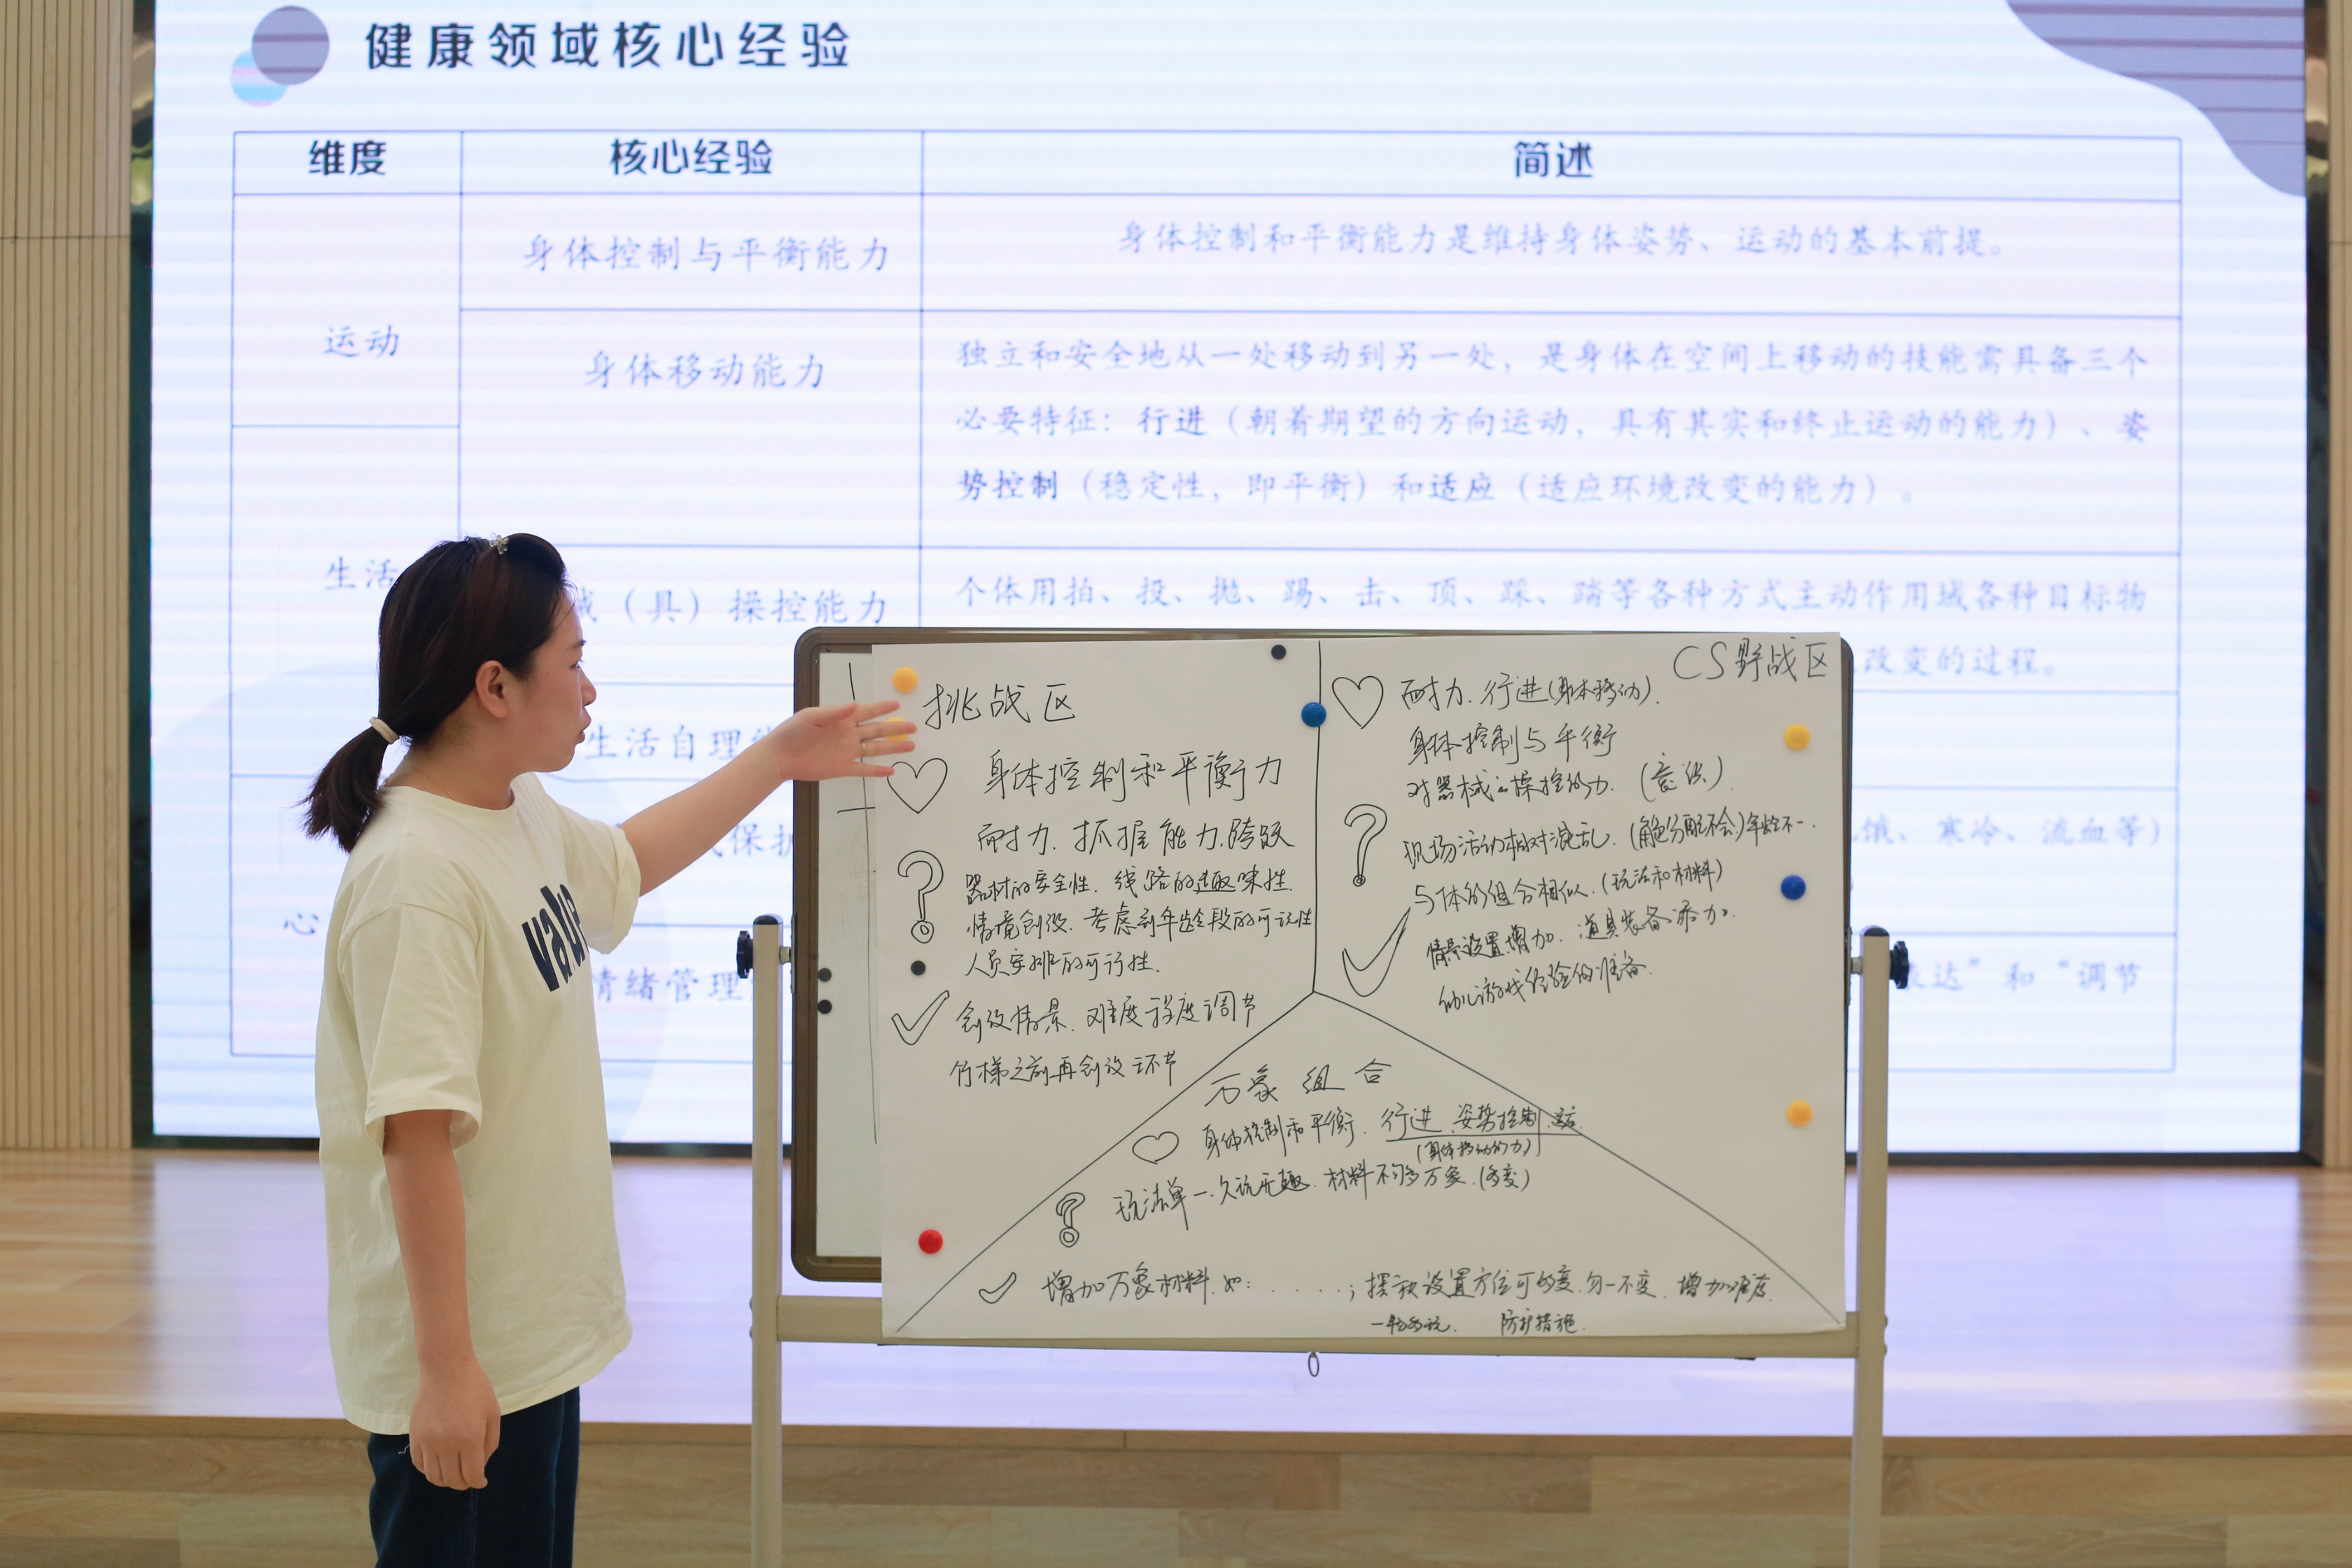 健康领域核心经验
维度
核心经验
简述
运动
身体控制与平衡能力
身体控制和平衡能力是维持身体姿势、运动的基本前提。
身体移动能力
独立和安全地从一处移动到另一处，是身体在空间上移动的技能需具备三个
必要特征：行进（朝着期望的方向运动，具有其实和终止运动的能力）、姿
势控制（稳定性，即平衡）和适应（适应环境改变的能力）。
生活
械（具）操控能力
个体用拍、投、抛、踢、击、顶、踩、踏等各种方式主动作用域各种目标物
改变的过程。
生活自理
保护
饿、寒冷、流血等）
心
情绪管理
表达”和“调节
value
挑战区
身体控制和平衡力
耐力. 抓握能力.跨跃
器材的安全性. 线路的趣味性.
情境创设. 考虑到年龄段的可玩性
人员安排的可行性.
创设情景. 难度程度调节
竹梯之前再创设环节
CS野战区
耐力. 行进(身体移动).
身体控制与平衡
对器械的操控能力.
现场活动相对混乱. (角色分配不会)年龄不一.
与体的组合相似.(玩法和材料)
情景设置增加. 道具装备添加.
幼儿游戏经验的准备.
万象组合
身体控制和平衡. 行进.姿势控制.
(身体移动能力)
玩法单一.久玩无趣. 材料不够多万象.(多变)
增加万象材料.如: . . . . . ; 摆放设置方位可多变.勿一不变. 增加难度.
一物多玩. 防护措施.